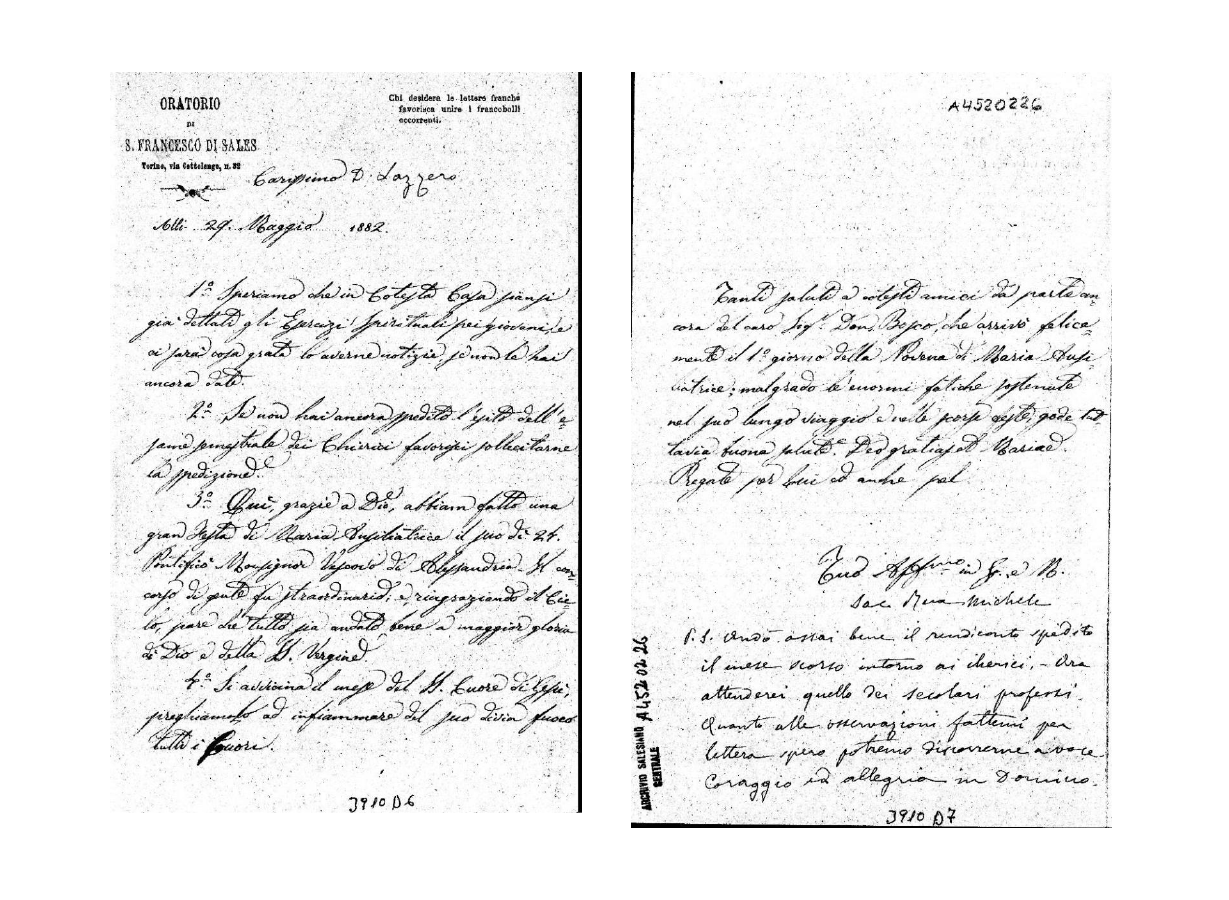 ORATORIO
DI
S. FRANCESCO DI SALES
Torino, via Cottolengo, n. 32
Chi desidera le lettere franche
favorisca unire i francobolli
occorrenti.
Carissimo D. Lazzero
29. Maggio 1882.
1° Speriamo che in Cotesta Casa siansi
già dettati gli Esercizi Spirituali pei giovani, e
ci sarà cosa grata lo averne notizie, se non le hai
ancora date.
2° Se non hai ancora spedito l'esito dell'e-
same semestrale dei Chierici favorisci sollecitarne
la spedizione.
3° Qui, grazie a Dio, abbiam fatto una
gran Festa di Maria Ausiliatrice il suo dì 24.
Pontificò Monsignor Vescovo di Alessandria. Il con-
corso di gente fu straordinario; e, ringraziando il Cie-
lo, pare che tutto sia andato bene a maggior gloria
di Dio e della SS. Vergine.
4° Si avvicina il mese del S. Cuore di Gesù,
preghiamolo ad infiammare del suo divin fuoco
tutti i cuori.
3910 D6
A4520226
Tanti saluti a cotesti amici da parte an-
cora del caro Sigr. Don Bosco, che arrivò felice-
mente il 1° giorno della Novena di Maria Ausi-
liatrice; malgrado le enormi fatiche sostenute
nel suo lungo viaggio e nelle feste, gode tut-
tavia buona salute. Deo gratias et Mariae.
Pregate per Lui ed anche pel
Tuo Affmo in G. e M.
Sac Rua Michele
P. S. Andò assai bene il rendiconto spedito
il mese scorso intorno ai chierici. - Ora
attenderei quello dei secolari professi.
Quanto alle osservazioni fattemi per
lettera spero potremo discorrerne a voce
Coraggio ed allegria in Domino.
ARCHIVIO SALESIANO
CENTRALE
A452 02 26
3910 D7